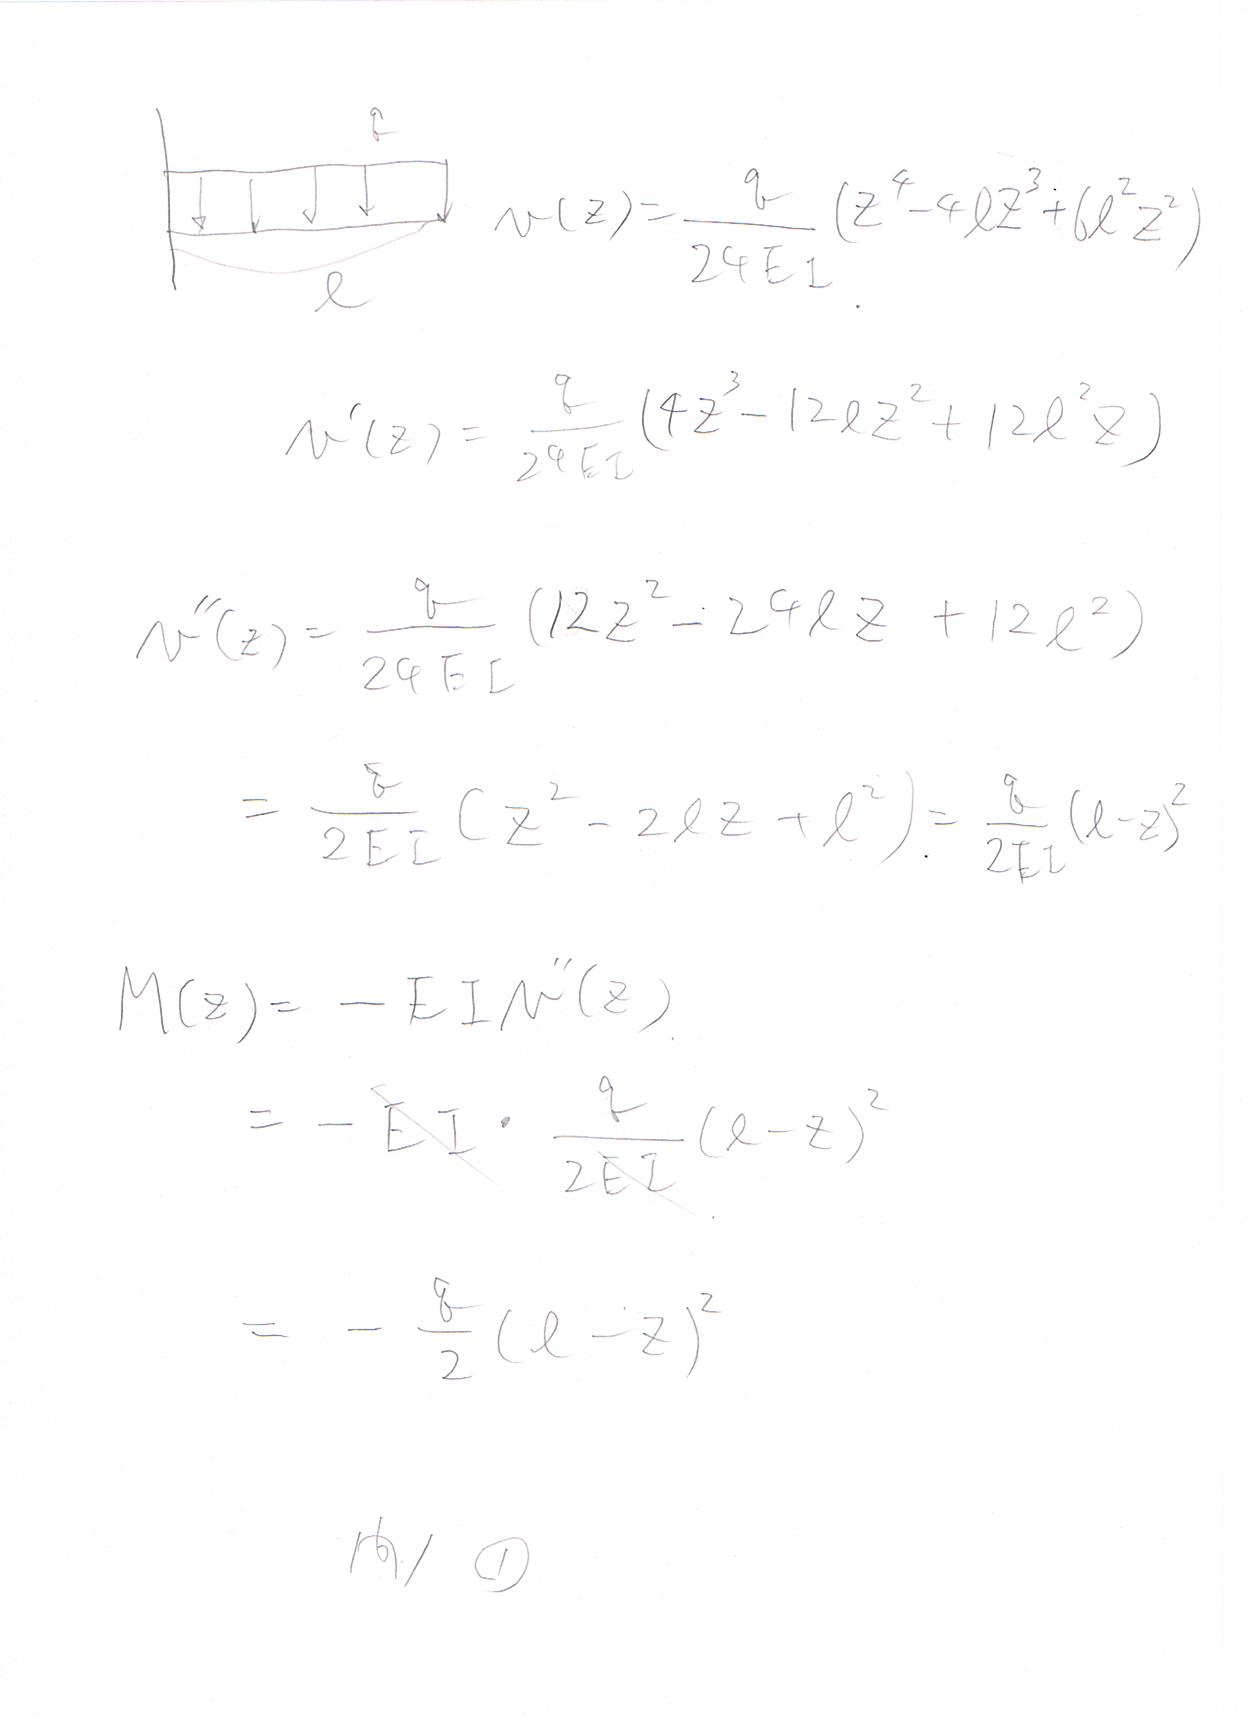 q
l
v(z) = q/24EI (z⁴ - 4lz³ + 6l²z²)
v'(z) = q/24EI (4z³ - 12lz² + 12l²z)
v''(z) = q/24EI (12z² - 24lz + 12l²)
= q/2EI (z² - 2lz + l²) = q/2EI (l-z)²
M(z) = - EIv''(z)
= - EI · q/2EI (l-z)²
= - q/2 (l-z)²
①